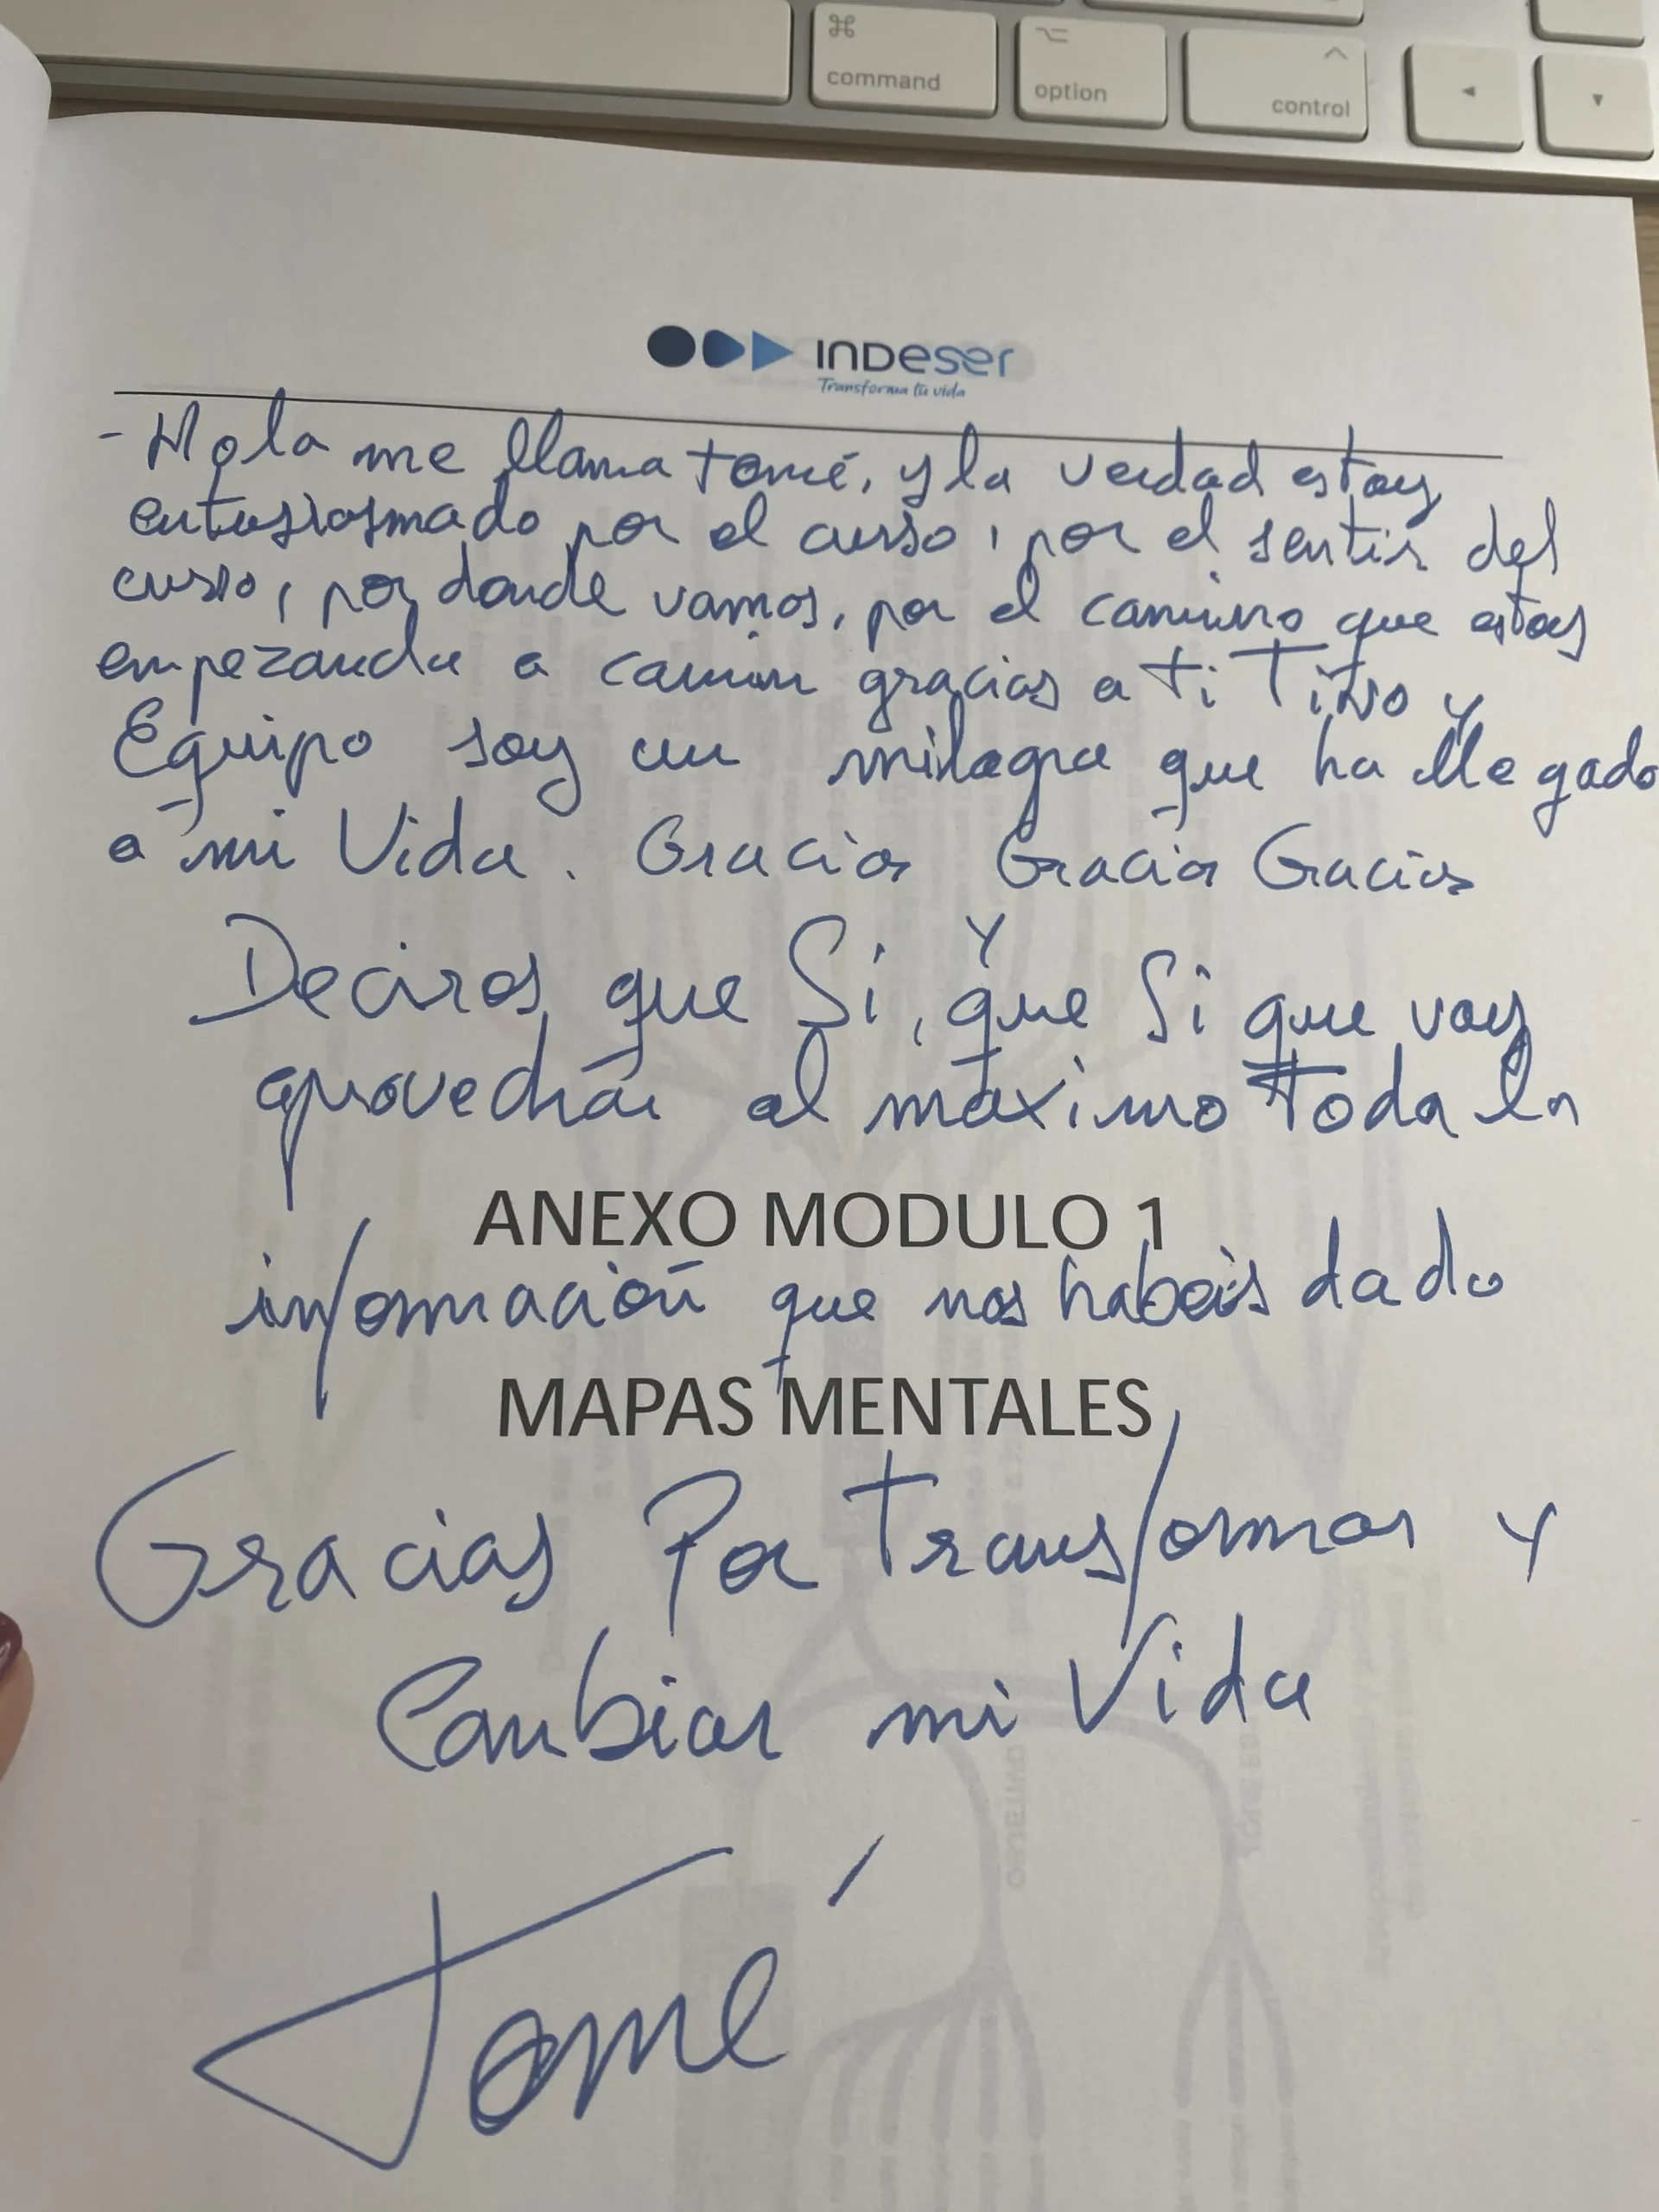 command
option
control
INDeser
Transforma tu vida
- Hola me llama tomé, y la verdad estoy
entusiasmado por el curso, por el sentir del
curso, por donde vamos, por el camino que estoy
empezando a camin gracias a ti Tino y
Equipo soy un milagro que ha llegado
a mi Vida. Gracias Gracias Gracias
Deciros que Si, y que Si que voy
aprovechar al máximo toda la
ANEXO MODULO 1
información que nos habeis dado
MAPAS MENTALES
Gracias Por Transformar y
Cambiar mi Vida
Tomé